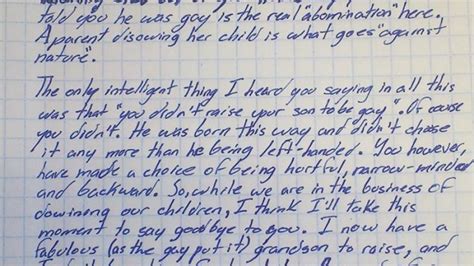 told you he was gay is the real "abomination" here.
A parent disowning her child is what goes "against
nature".
The only intelligent thing I heard you saying in all this
was that "you didn't raise your son to be gay". Of course
you didn't. He was born this way and didn't choose
it any more than he being left-handed. You however,
have made a choice of being hurtful, narrow-minded
and backward. So, while we are in the business of
disowning our children, I think I'll take this
moment to say goodbye to you. I now have a
fabulous (as the gay put it) grandson to raise, and